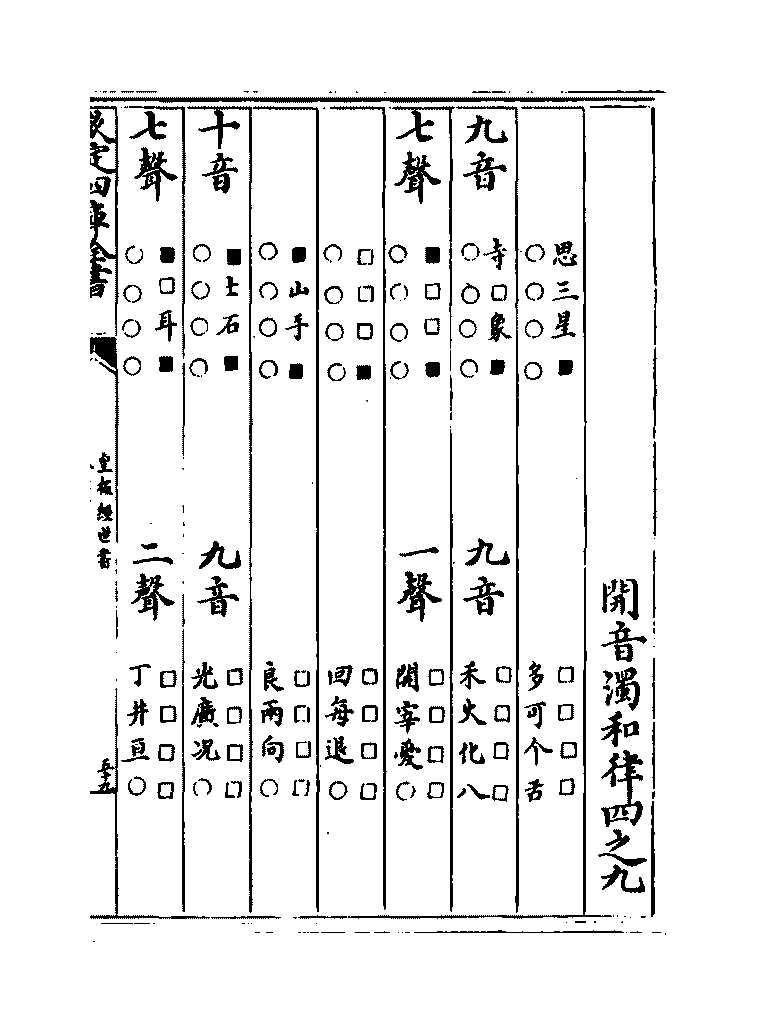 開音濁和律四之九
思三星■
○○○○
□□□□
多可个舌
九音
寺□象■
○○○○
九音
□□□□
禾火化八
七聲
■□□■
○○○○
一聲
□□□□
開宰愛○
□□□■
○○○○
□□□□
回每退○
■山手■
○○○○
□□□□
良兩向○
十音
■士石■
○○○○
九音
□□□□
光廣况○
七聲
■□耳■
○○○○
二聲
□□□□
丁井亘○
欽定四庫全書
皇極經世書
五十九